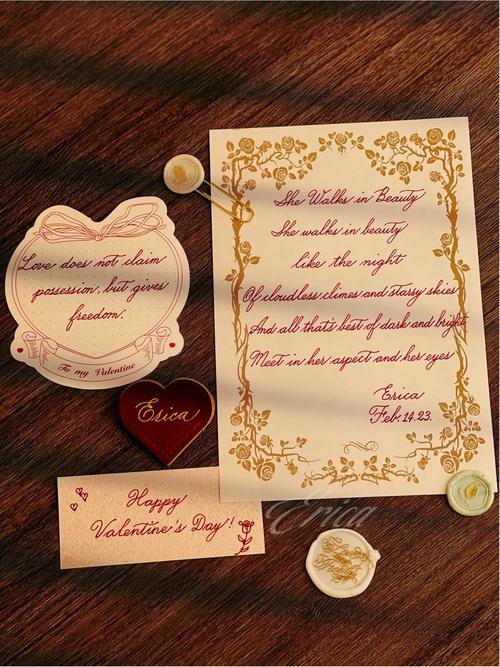 She Walks in Beauty
She walks in beauty
like the night
Of cloudless climes and starry skies
And all that's best of dark and bright
Meet in her aspect and her eyes
Erica
Feb. 14. 23.
Love does not claim
possession, but gives
freedom.
To my Valentine
Erica
Happy
Valentine's Day!
Erica